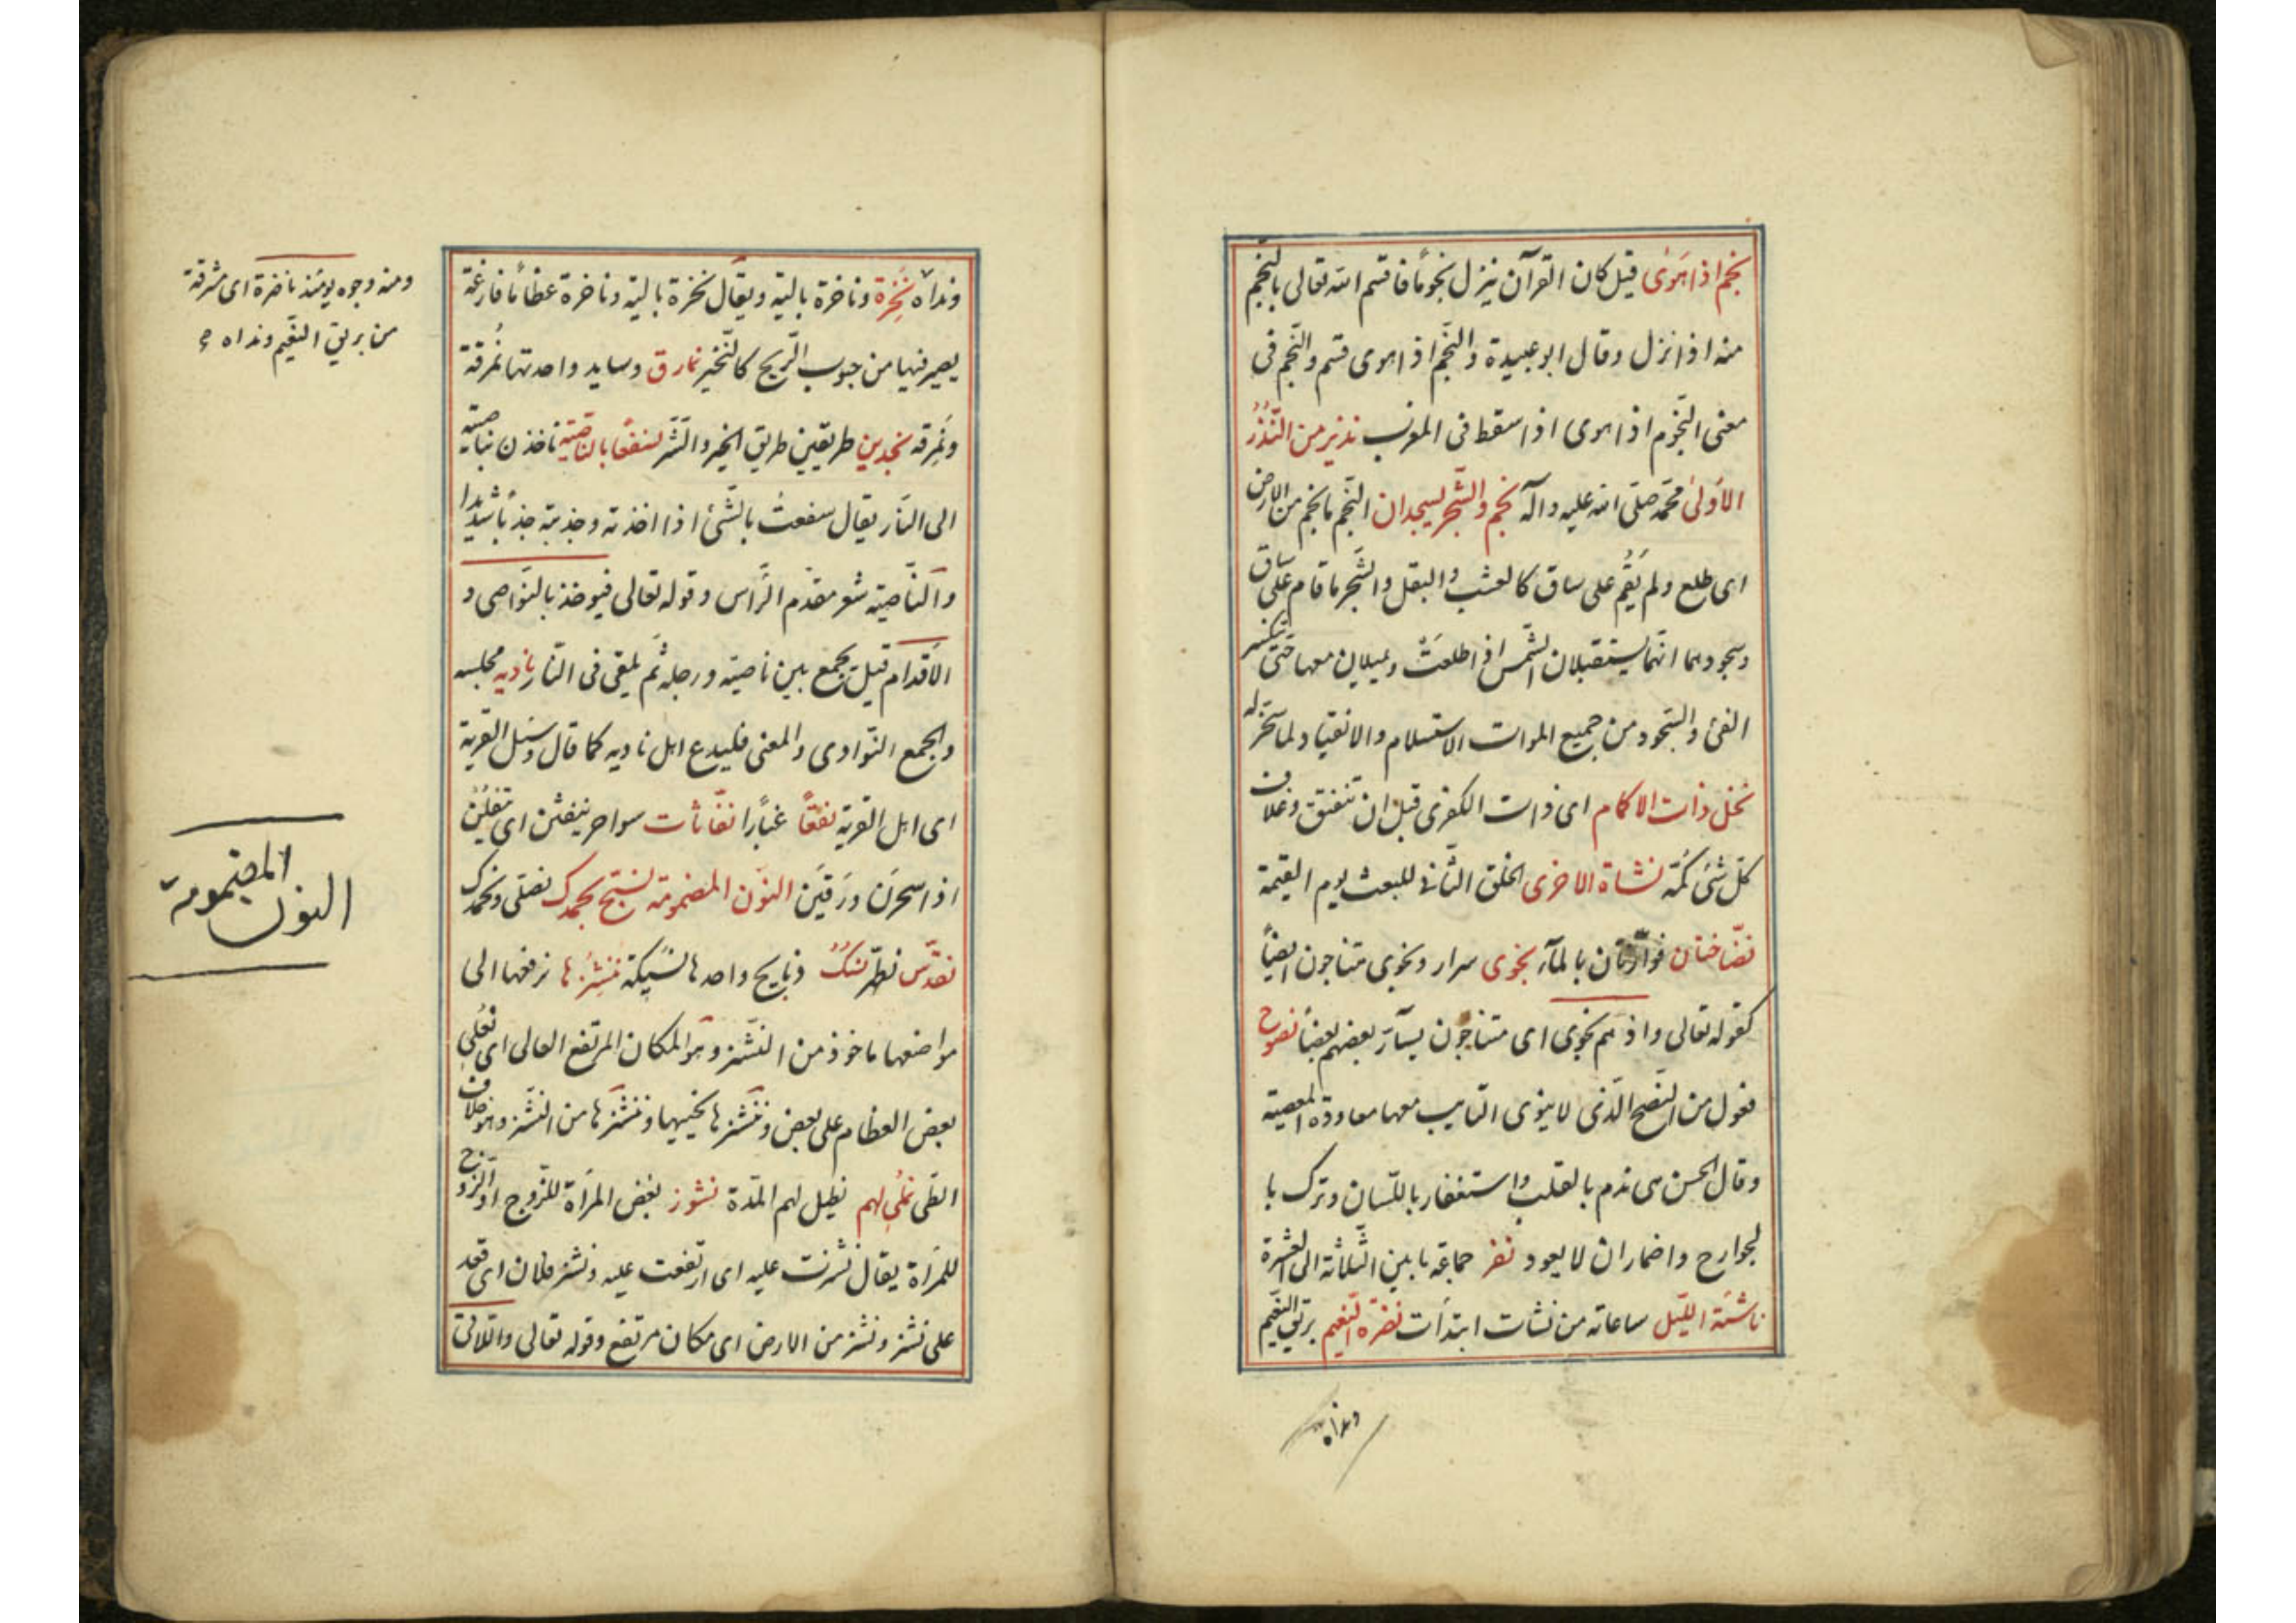 نجم اذا هَوٰى قيل كان القرآن ينزل نجومًا فاقسم اللّه تعالى بالنّجم
منه اذا نزل وقال ابو عبيدة والنّجم اذا هوى قسم والنّجم فى
معنى النّجوم اذا هوى اذا سقط فى المغرب نذير من النّذُر
الاَولىٰ محمّد صلّى اللّه عليه وآله نجم والشّجر يسجدان النّجم ما نجم من الارض
اى طلع ولم يَقُم على ساق كالعشب والبقل والشّجر ما قام على ساق
وسجودهما انّهما يستقبلان الشّمس اذا طلعَتْ ويميلان معها حتّى ينكسر
الفئ والسّجود من جميع الموات الاستسلام والانقياد لما سخّر له
نخل ذات الاكمام اى ذات الكفرى قبل ان تنفتق وغلاف
كلّ شئ كُمّه نشاة الاخرى الخلق الثّانى للبعث يوم القيمة
نضّاختان فوّارتان بالمآء نجوى سرار ونجوى متناجون ايضاً
كقوله تعالى واذ هم نجوى اى متناجون يسآرّ بعضهم بعضاً نصوح
فعول من النّصح الّذى لا ينوى التّايب معها معاودة المعصية
وقال الحسن هى ندم بالقلب واستغفار باللّسان وترك با
لجوارح واضمار ان لا يعود نفر جماعة ما بين الثّلاثة الى العشرة
ناشئة اللّيل ساعاته من نشات ابتدأت نضرة النّعيم بريق النّعيم
ونداه
ونداه نَخِرة وناخرة بالية ويقال نخرة بالية وناخرة عظاماً فارغة
يصير فيها من جوب الرّيح كالنّخير نمارق وسايد واحدتها نُمرقة
ونِمرقه نجدين طريقين طريق الخير والشّر لنسفعًا بالنّاصية ناخذن بناصيته
الى النّار يقال سفعت بالشّئ اذا اخذته وجذبته جذبًا شديدا
والنّاصية شعر مقدّم الرّاس وقوله تعالى فيوخذ بالنّواصى و
الاَقدام قيل يجمع بين ناصيته ورجله ثم يلقى فى النّار ناديه مجلسه
والجمع النّوادى والمعنى فليدع اهل ناديه كما قال وسئل القرية
اى اهل القرية نقعًا غبارًا نفّاثات سواحر ينفثن اى يتفلن
اذا سحرن ورَقَين النّون المضمومة نسبّح بحمدك نصلّى ونحمدك
نقدّس نطهّر نسُك ذبايح واحدها نسيكة ننشِزُها نرفعها الى
مواضعها ماخوذ من النّشز وهو المكان المرتفع العالى اى نُعلى
بعض العظام على بعض وننشرها نحييها وننشرها من النّشر وهو خلاف
الطّى نملى لهم نطيل لهم المدّة نشوز بغض المراة للزّوج او الزّوج
للمراة يقال نشزت عليه اى ارتفعت عليه ونشز فلان اى قعد
على نشز ونشز من الارض اى مكان مرتفع وقوله تعالى واللّاتى
ومنه وجوه يومئذ ناضرة اى مشرقة
من بريق النّعيم ونداه
النون المضمومة